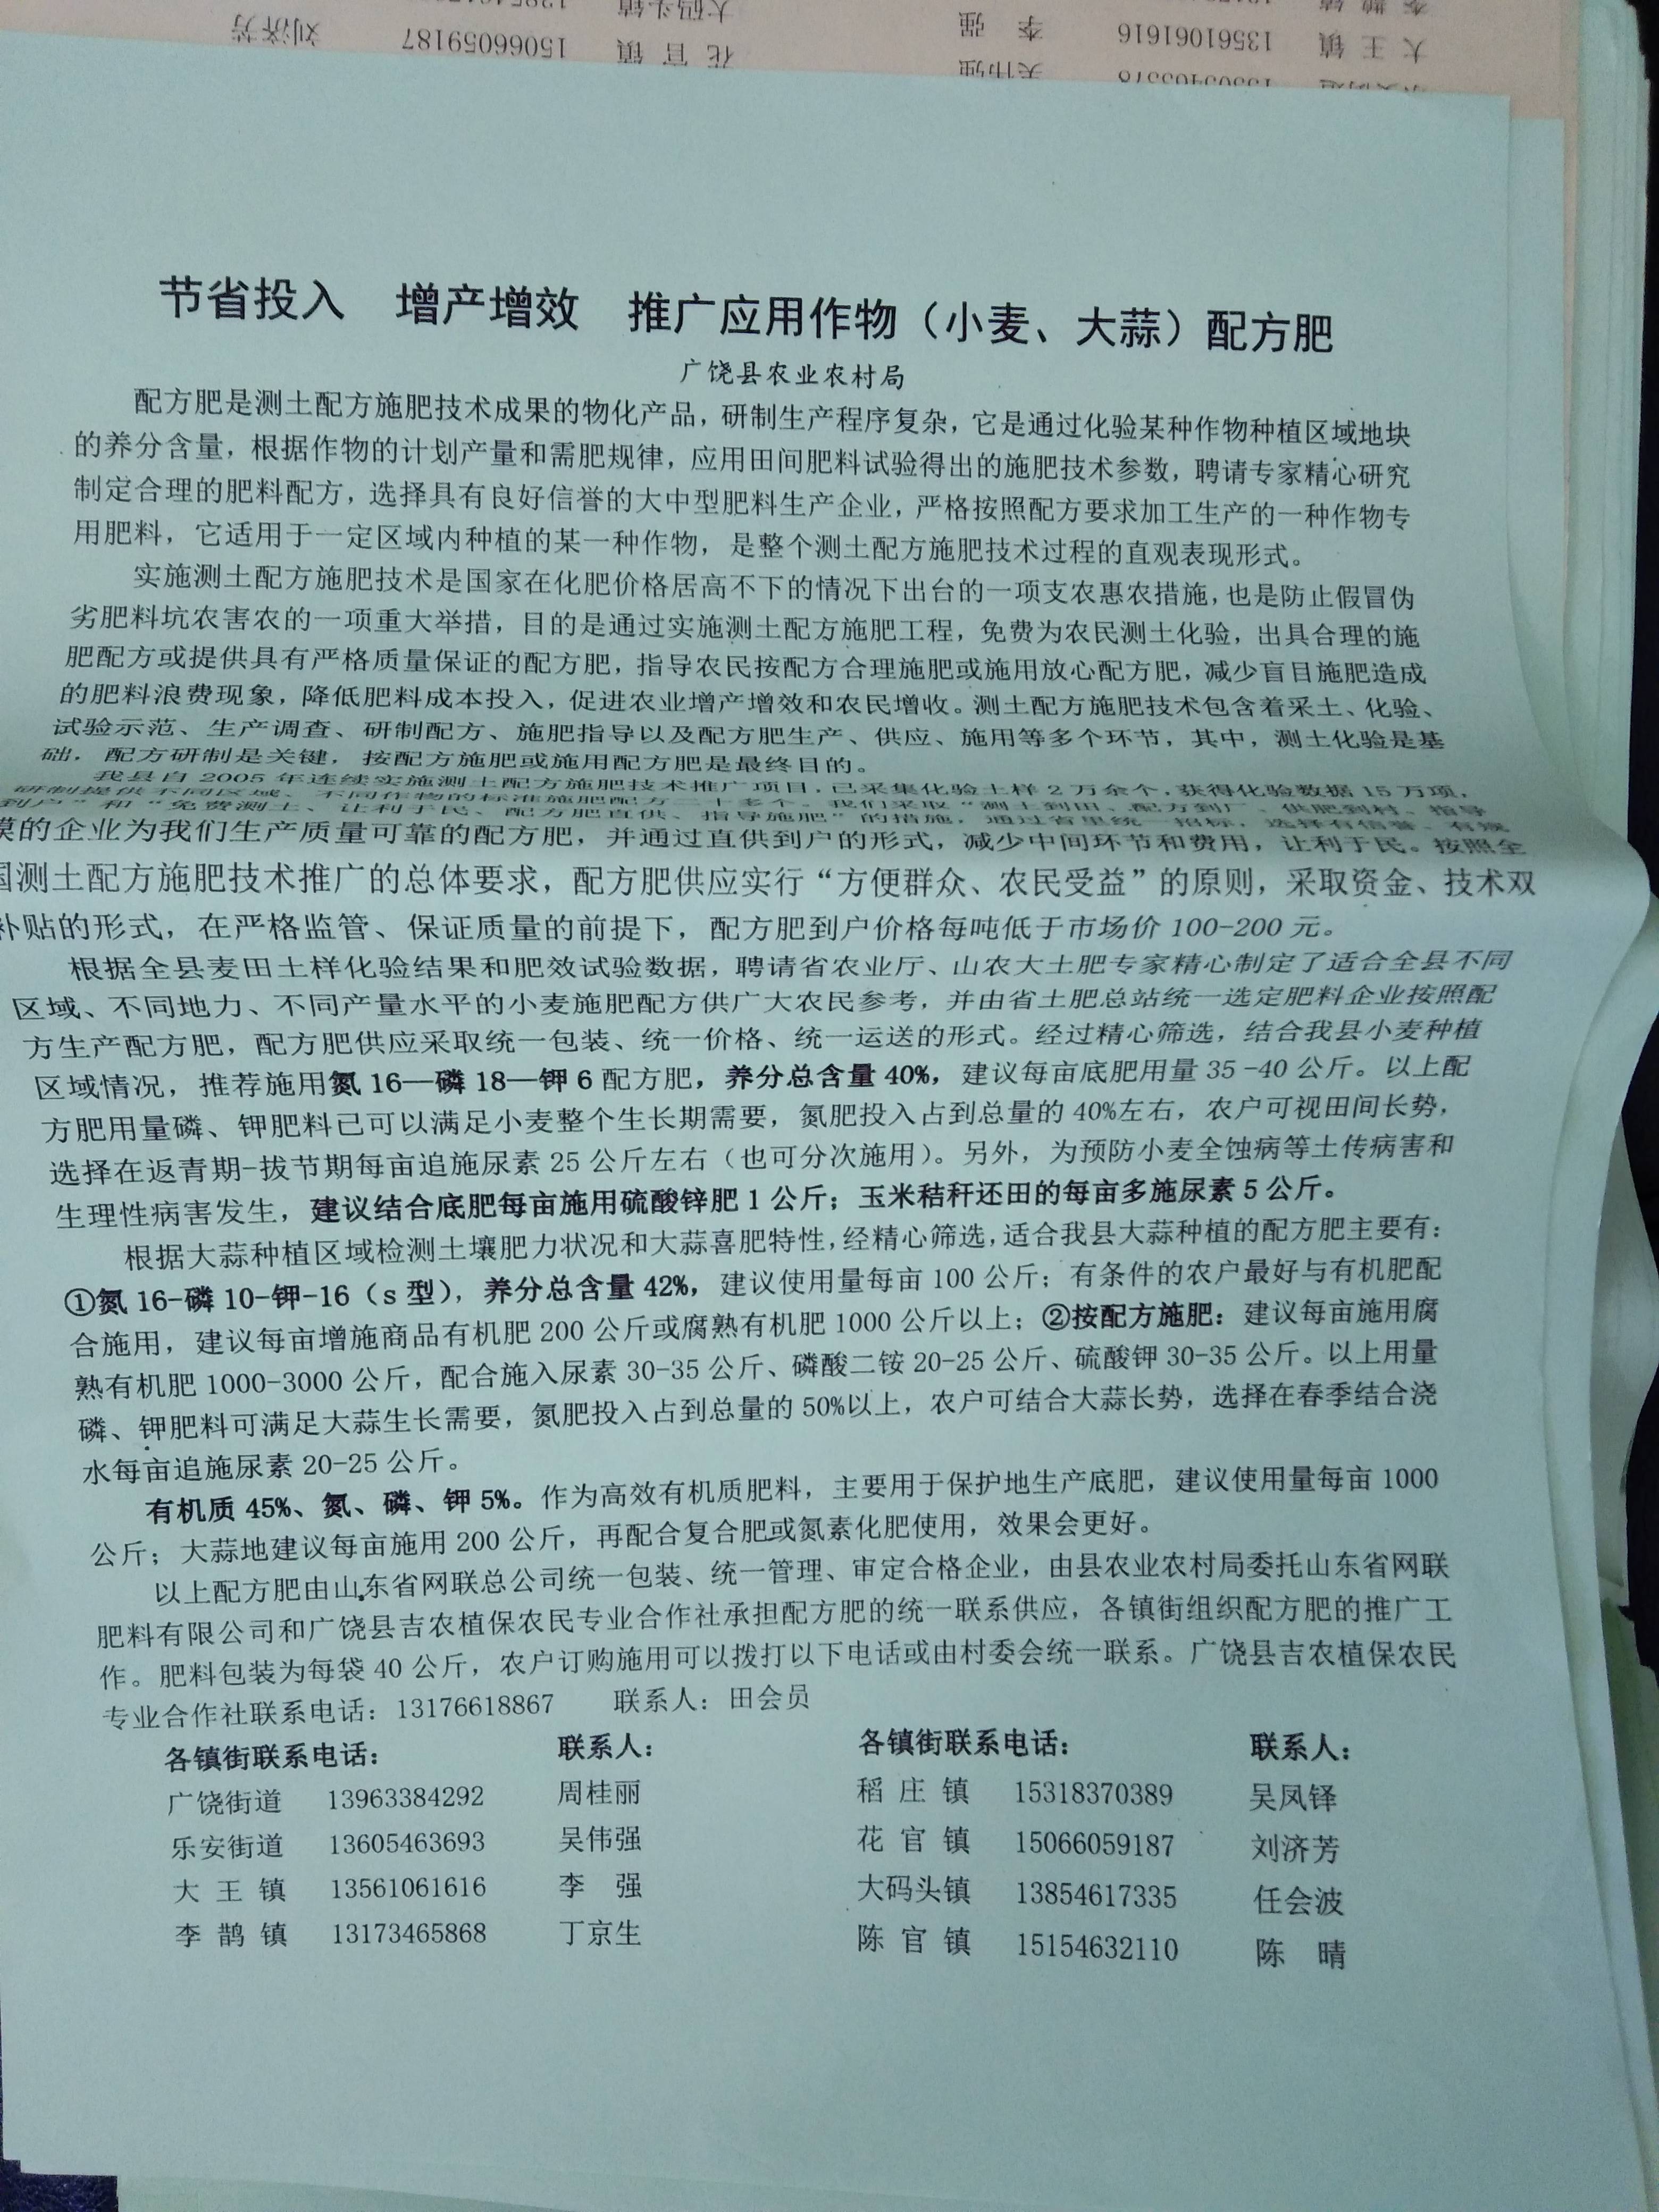 大王镇 13561061616 李 强
花官镇 15066059187 刘济芳
节省投入 增产增效 推广应用作物（小麦、大蒜）配方肥
广饶县农业农村局
配方肥是测土配方施肥技术成果的物化产品，研制生产程序复杂，它是通过化验某种作物种植区域地块
的养分含量，根据作物的计划产量和需肥规律，应用田间肥料试验得出的施肥技术参数，聘请专家精心研究
制定合理的肥料配方，选择具有良好信誉的大中型肥料生产企业，严格按照配方要求加工生产的一种作物专
用肥料，它适用于一定区域内种植的某一种作物，是整个测土配方施肥技术过程的直观表现形式。
实施测土配方施肥技术是国家在化肥价格居高不下的情况下出台的一项支农惠农措施，也是防止假冒伪
劣肥料坑农害农的一项重大举措，目的是通过实施测土配方施肥工程，免费为农民测土化验，出具合理的施
肥配方或提供具有严格质量保证的配方肥，指导农民按配方合理施肥或施用放心配方肥，减少盲目施肥造成
的肥料浪费现象，降低肥料成本投入，促进农业增产增效和农民增收。测土配方施肥技术包含着采土、化验、
试验示范、生产调查、研制配方、施肥指导以及配方肥生产、供应、施用等多个环节，其中，测土化验是基
础，配方研制是关键，按配方施肥或施用配方肥是最终目的。
我县自 2005 年连续实施测土配方施肥技术推广项目，已采集化验土样 2 万余个，获得化验数据 15 万项，
研制提供不同区域、不同作物的标准施肥配方二十多个。我们采取“测土到田、配方到厂、供肥到村、指导
到户”和“免费测土、让利于民、配方肥直供、指导施肥”的措施，通过省里统一招标，选择有信誉、有规
模的企业为我们生产质量可靠的配方肥，并通过直供到户的形式，减少中间环节和费用，让利于民。按照全
国测土配方施肥技术推广的总体要求，配方肥供应实行“方便群众、农民受益”的原则，采取资金、技术双
补贴的形式，在严格监管、保证质量的前提下，配方肥到户价格每吨低于市场价 100-200 元。
根据全县麦田土样化验结果和肥效试验数据，聘请省农业厅、山农大土肥专家精心制定了适合全县不同
区域、不同地力、不同产量水平的小麦施肥配方供广大农民参考，并由省土肥总站统一选定肥料企业按照配
方生产配方肥，配方肥供应采取统一包装、统一价格、统一运送的形式。经过精心筛选，结合我县小麦种植
区域情况，推荐施用氮 16—磷 18—钾 6 配方肥，养分总含量 40%，建议每亩底肥用量 35-40 公斤。以上配
方肥用量磷、钾肥料已可以满足小麦整个生长期需要，氮肥投入占到总量的 40%左右，农户可视田间长势，
选择在返青期-拔节期每亩追施尿素 25 公斤左右（也可分次施用）。另外，为预防小麦全蚀病等土传病害和
生理性病害发生，建议结合底肥每亩施用硫酸锌肥 1 公斤；玉米秸秆还田的每亩多施尿素 5 公斤。
根据大蒜种植区域检测土壤肥力状况和大蒜喜肥特性，经精心筛选，适合我县大蒜种植的配方肥主要有：
①氮 16-磷 10-钾-16（s 型），养分总含量 42%，建议使用量每亩 100 公斤；有条件的农户最好与有机肥配
合施用，建议每亩增施商品有机肥 200 公斤或腐熟有机肥 1000 公斤以上；②按配方施肥：建议每亩施用腐
熟有机肥 1000-3000 公斤，配合施入尿素 30-35 公斤、磷酸二铵 20-25 公斤、硫酸钾 30-35 公斤。以上用量
磷、钾肥料可满足大蒜生长需要，氮肥投入占到总量的 50%以上，农户可结合大蒜长势，选择在春季结合浇
水每亩追施尿素 20-25 公斤。
有机质 45%、氮、磷、钾 5%。作为高效有机质肥料，主要用于保护地生产底肥，建议使用量每亩 1000
公斤；大蒜地建议每亩施用 200 公斤，再配合复合肥或氮素化肥使用，效果会更好。
以上配方肥由山东省网联总公司统一包装、统一管理、审定合格企业，由县农业农村局委托山东省网联
肥料有限公司和广饶县吉农植保农民专业合作社承担配方肥的统一联系供应，各镇街组织配方肥的推广工
作。肥料包装为每袋 40 公斤，农户订购施用可以拨打以下电话或由村委会统一联系。广饶县吉农植保农民
专业合作社联系电话：13176618867 联系人：田会员
各镇街联系电话： 联系人： 各镇街联系电话： 联系人：
广饶街道 13963384292 周桂丽 稻 庄 镇 15318370389 吴凤铎
乐安街道 13605463693 吴伟强 花 官 镇 15066059187 刘济芳
大 王 镇 13561061616 李 强 大码头镇 13854617335 任会波
李 鹊 镇 13173465868 丁京生 陈 官 镇 15154632110 陈 晴